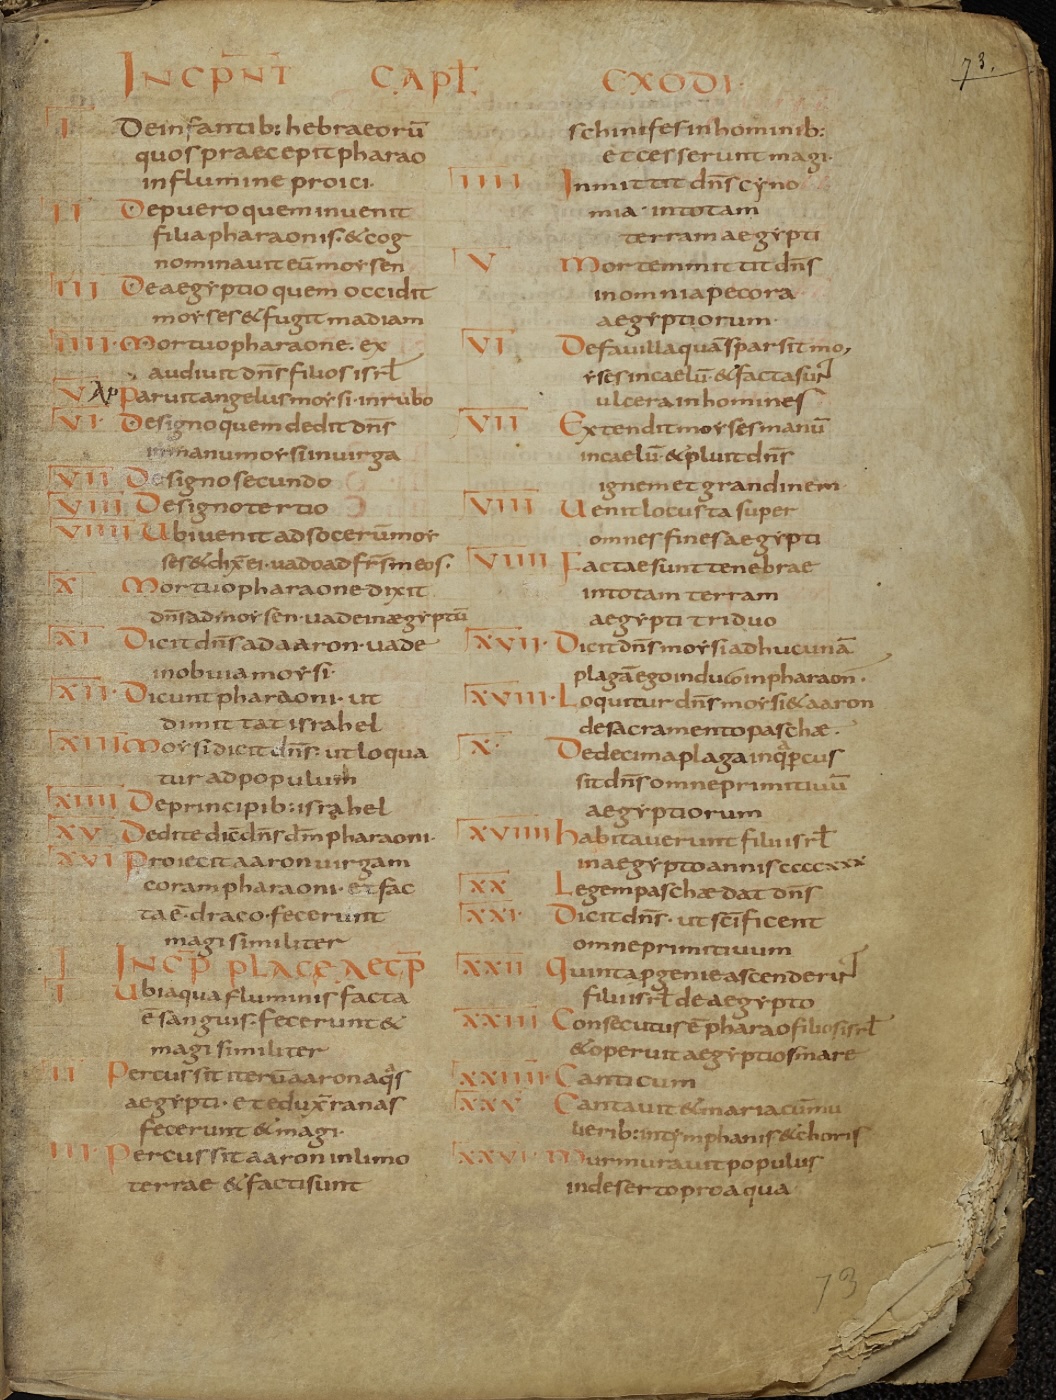 INCPN̄T CAPT̄ EXODI·
73.
I Deinfantib: hebraeorū
quos praecepit pharao
in flumine proici·
II De puero quem inuenit
filia pharaonis·&cog
nominauit eū moysen
III De aegyptio quem occidit
moyses & fugit madiam
IIII· Mortuo pharaone· ex
audiuit dn̄s filios isrl̄
V Ap Paruit angelus moysi·in rubo
VI· De signo quem dedit dn̄s
in manu moysi in uirga
VII De signo secundo
VIII De signo tertio
VIIII Ubi uenit ad socerū moy
ses & dix̄ ei·uado ad fr̄s meos·
X Mortuo pharaone dixit
dn̄s ad moysen·uade in aegyptū
XI Dicit dn̄s ad aaron·uade
in obuia moysi·
XII· Dicunt pharaoni·ut
dimittat israhel
XIII Moysi dicit dn̄s·ut loqua
tur ad populum
XIIII De principib: israhel
XV De dite diē dn̄s dm̄ pharaoni·
XVI Proiecit aaron uirgam
coram pharaoni·et fac
ta ē·draco·fecerunt
magi similiter
INCP̄ PLAGE AEGP̄
I Ubi aqua fluminis facta
ē sanguis·fecerunt &
magi similiter
II Percussit iterū aaron aq̄s
aegypti·et edux̄ ranas
fecerunt & magi·
III· Percussit aaron in limo
terrae & facti sunt
schinifes in hominib:
et cesserunt magi·
IIII Inmittit dn̄s cyno
mia· in totam
terram aegypti
V Mortem mittit dn̄s
in omnia pecora
aegyptiorum·
VI De fauilla quā sparsit mo,
yses in caelū·& facta sun̄t
ulcera in homines
VII Extendit moyses manū
in caelū·& pluit dn̄s
ignem et grandinem·
VIII Uenit locusta super
omnes fines aegypti
VIIII Factae sunt tenebrae
in totam terram
aegypti triduo
XVII· Dicit dn̄s moysi adhuc unā
plagā ego induco in pharaon·
XVIII· Loquitur dn̄s moysi & aaron
de sacramento paschæ·
X· De decima plaga in qua percus
sit dn̄s omne primitiuū
aegyptiorum
XVIIII habitauerunt filii isrl̄
in aegypto annis ccccxxx
XX Legem paschæ dat dn̄s
XXI· Dicit dn̄s·ut sc̄ificent
omne primitiuum
XXII Quinta p̱genie ascenderūt
filii isrl̄ de aegypto
XXIII Consecutus ē pharao filios isrl̄
& operuit aegyptios mare
XXIIII· Canticum
XXV Cantauit & maria cū mu
lierib: in tymphanis & choris
XXVI· Murmurauit populus
in deserto pro aqua
73